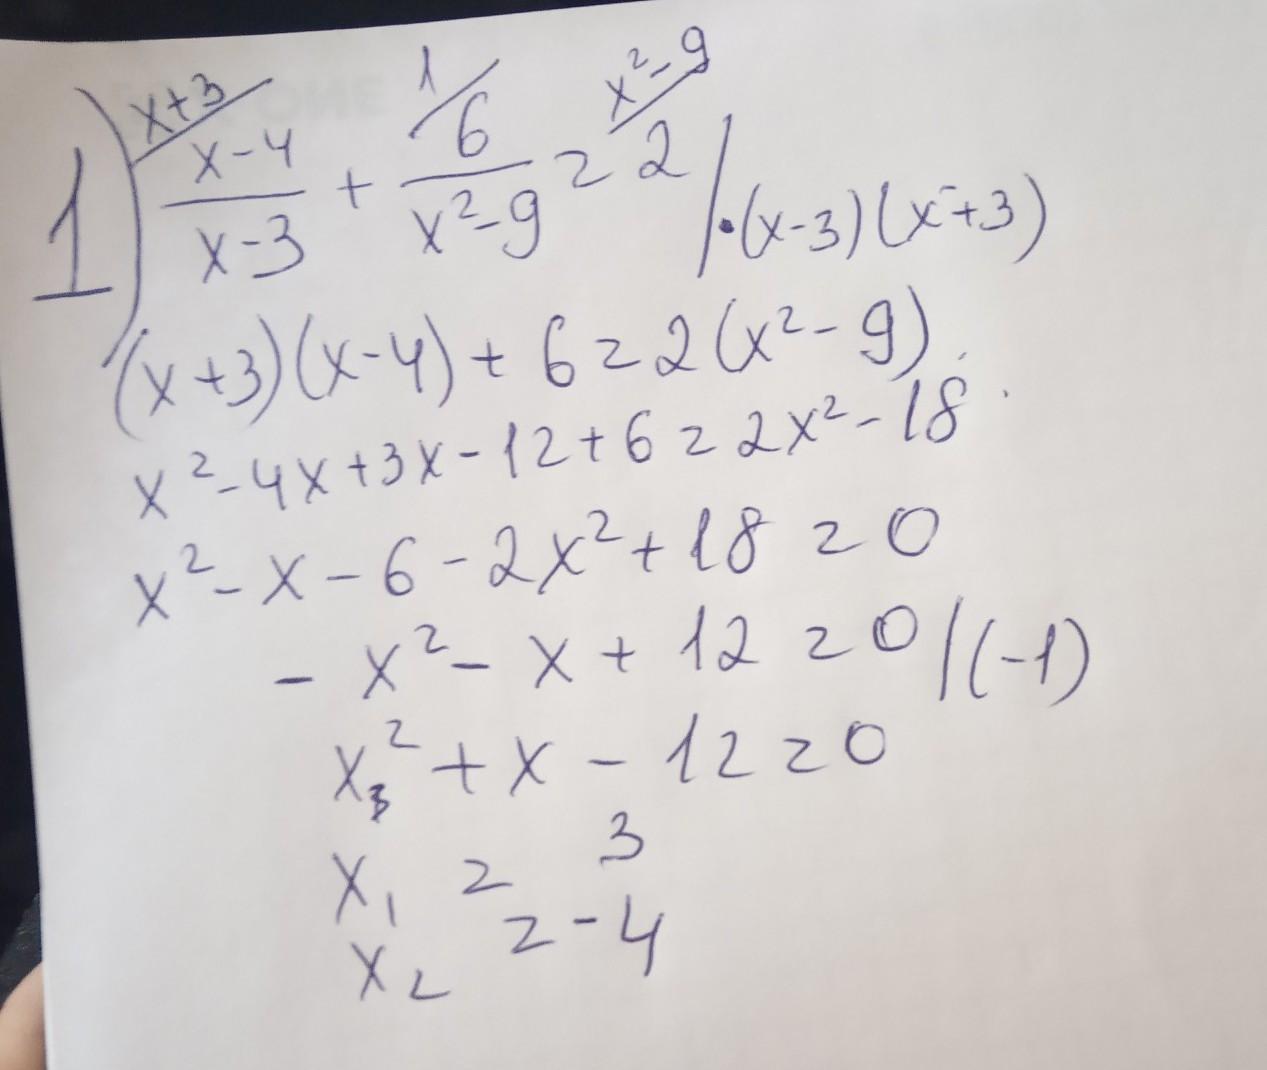 1) x+3/ (x-4)/(x-3) + 1/ 6/(x²-9) = x²-9/ 2 / ·(x-3)(x+3)
(x+3)(x-4)+6=2(x²-9)
x²-4x+3x-12+6=2x²-18
x²-x-6-2x²+18=0
-x²-x+12=0/(-1)
x²+x-12=0
x₁=3
x₂=-4